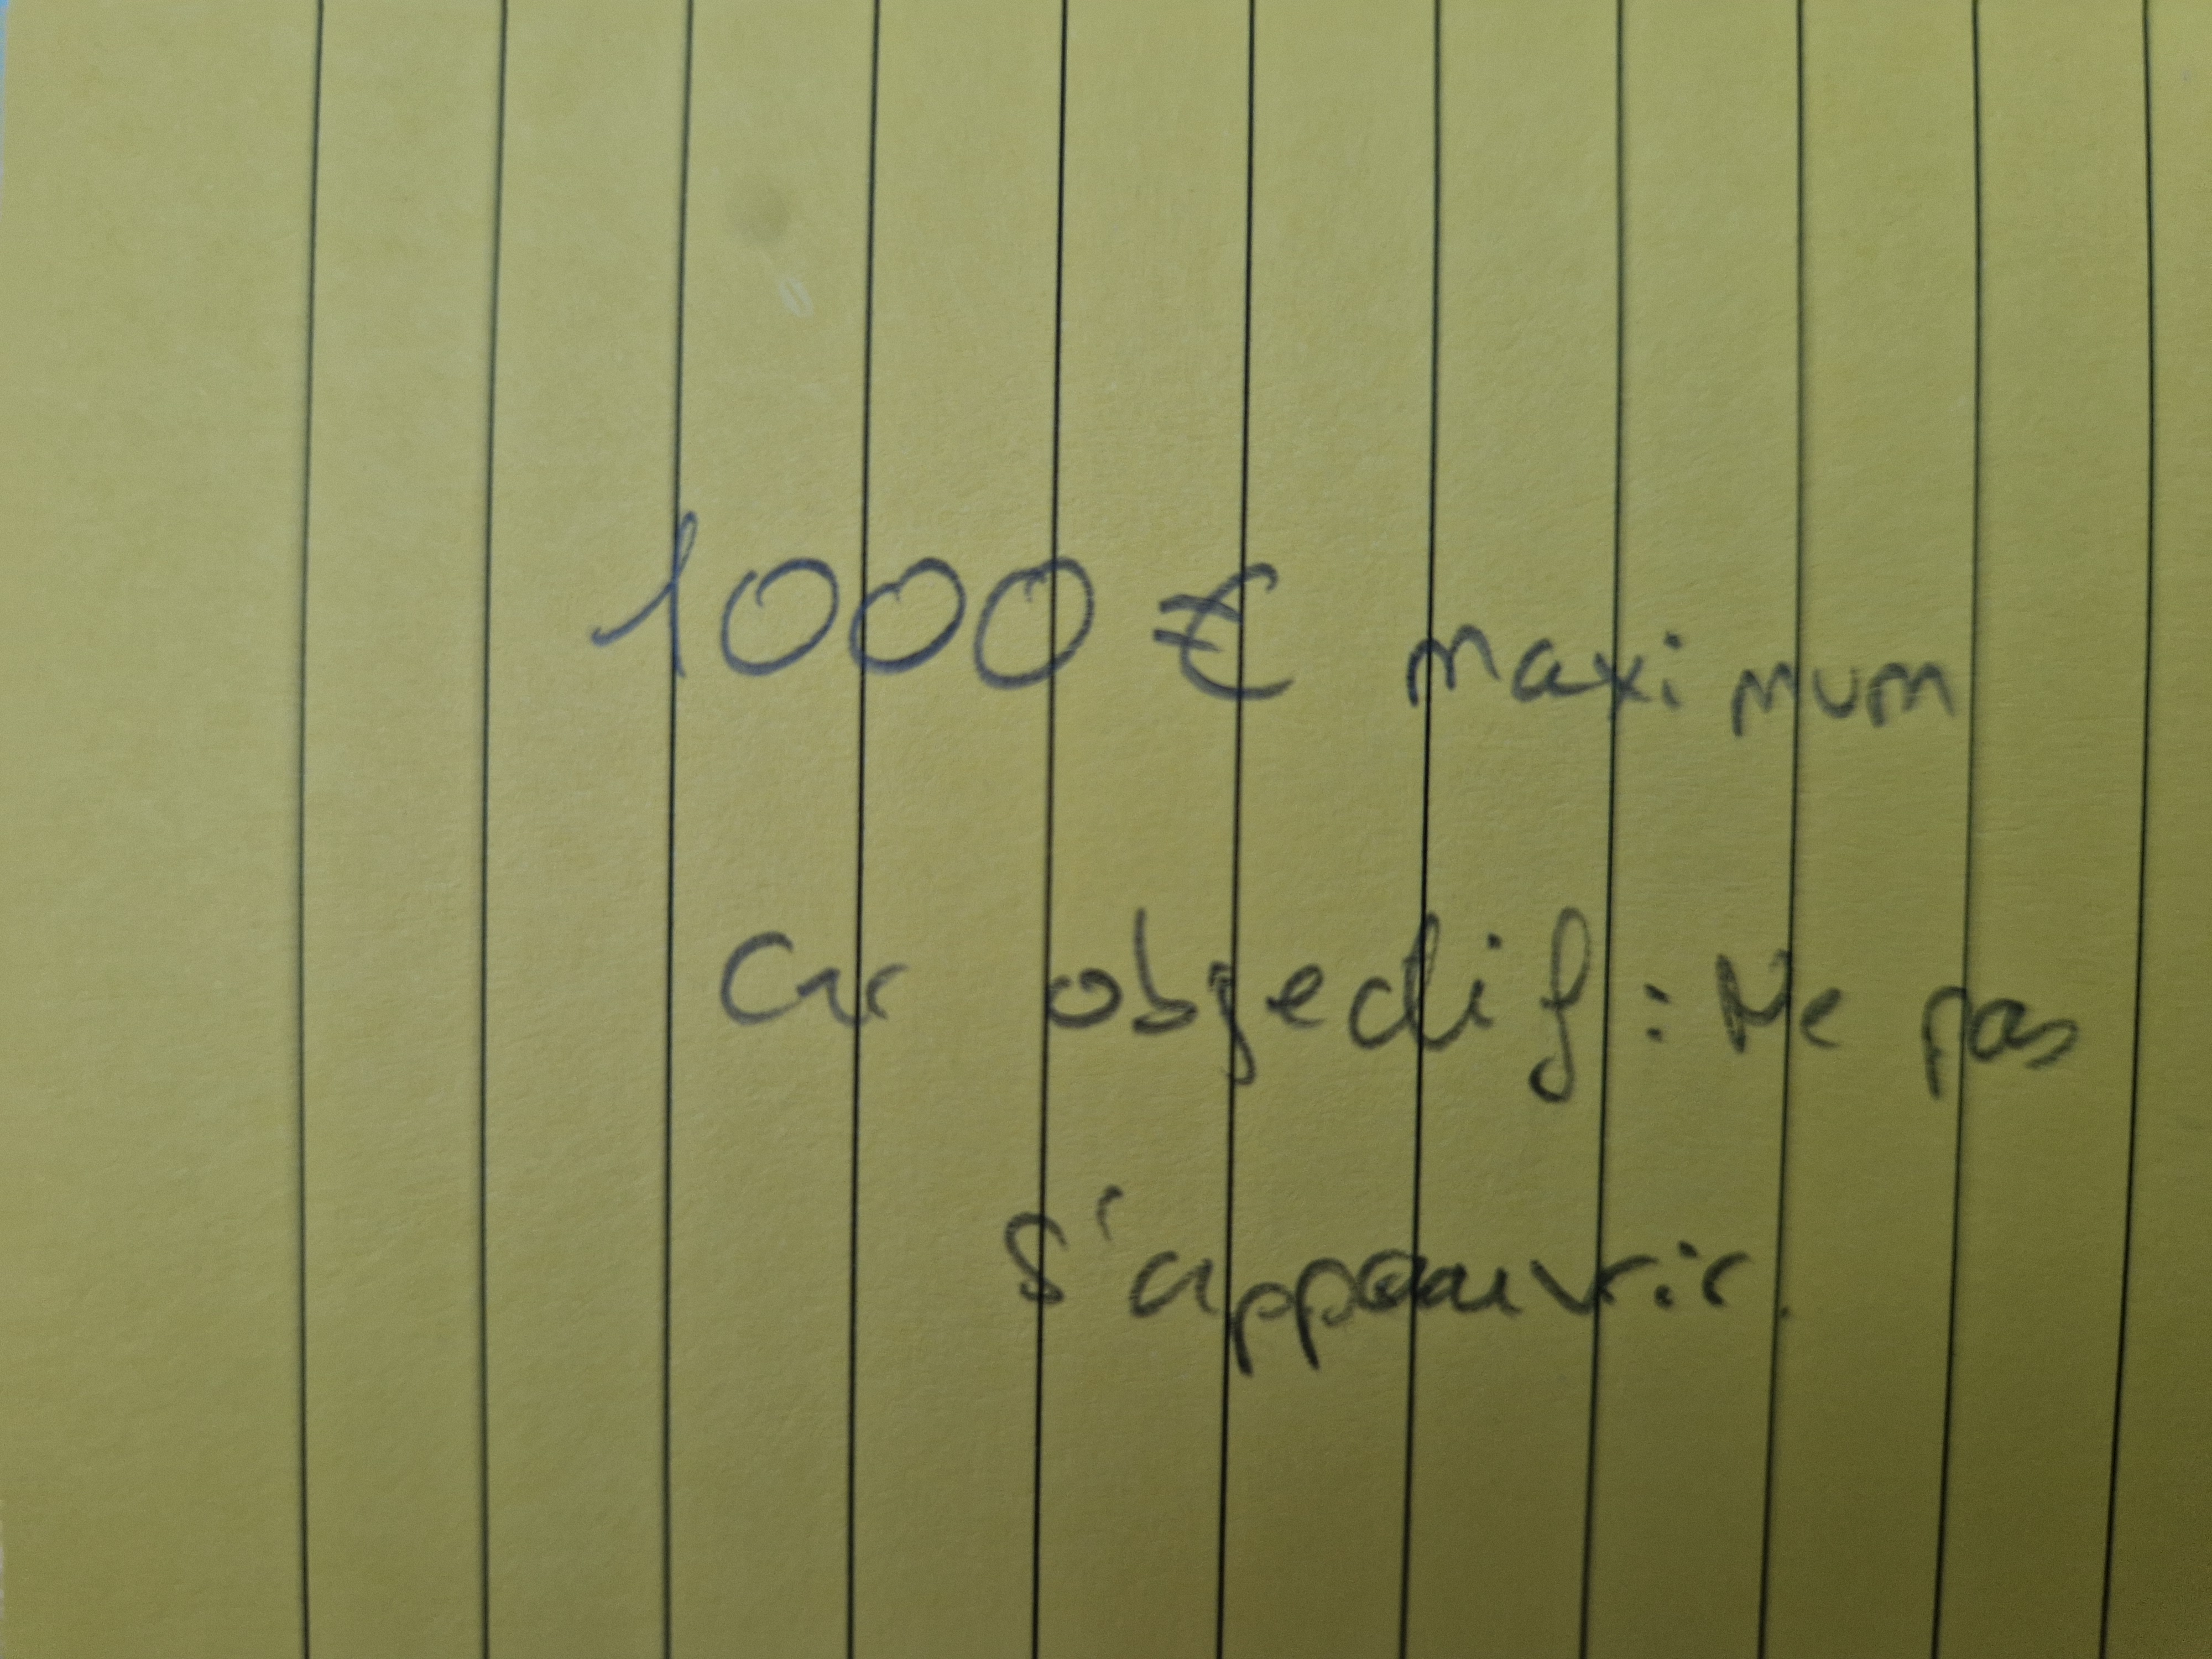 1000 € maximum
Car objectif : Ne pas
s'appauvrir.